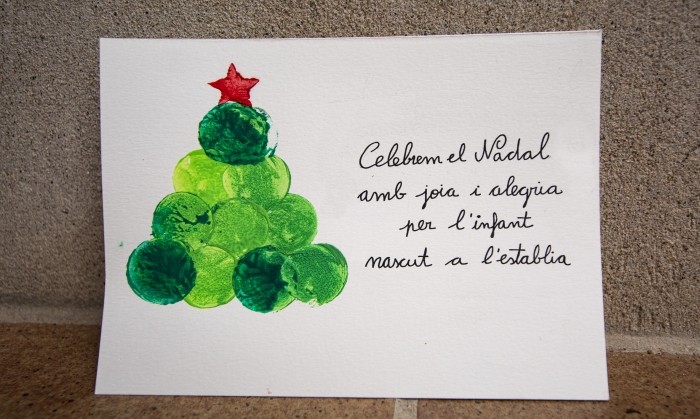 Celebrem el Nadal
amb joia i alegria
per l'infant
nascut a l'establia